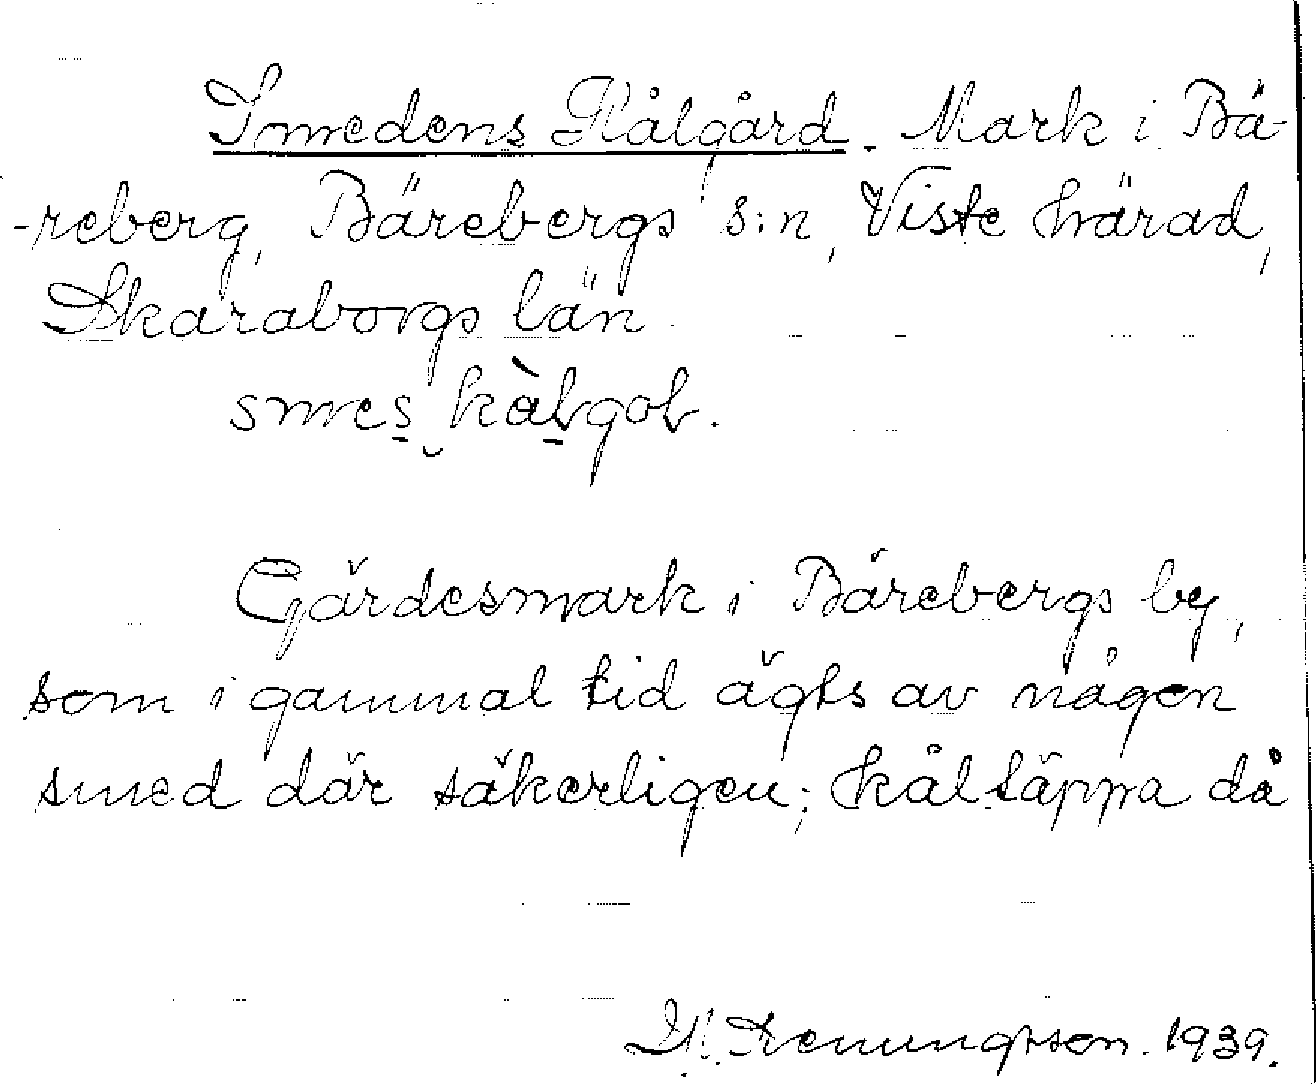 Smedens Kålgård. Mark i Bä-
-reberg, Bärebergs s:n, Viste härad,
Skaraborgs län.
smes kàlgol.
Gärdesmark i Bärebergs by,
som i gammal tid ägts av någon
smed där säkerligen; kåltäppa då
1939.